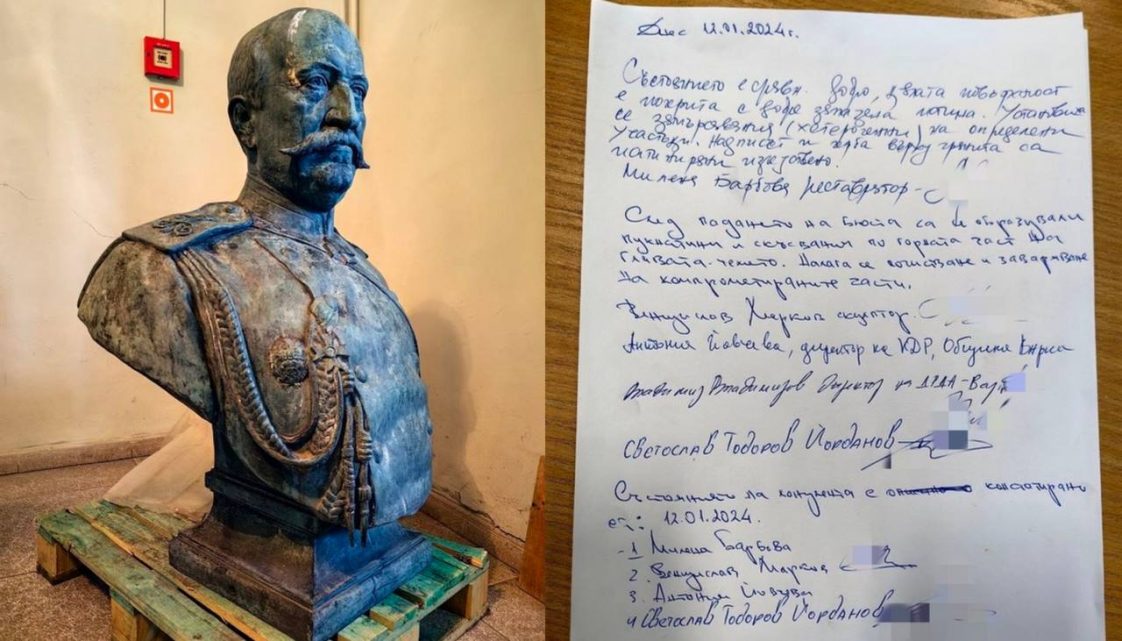 Днес 12.01.2024г.
Състоянието е сравн. добро, цялата повърхност
е покрита с добре запазена патина. Установиха
се замърсявания (хетерогенни) на определени
участъци. Надписът и герба върху гранита са
патинирани изкуствено.
Милена Барбова реставратор -
След падането на бюста са се образували
пукнатини и скъсвания по горната част на
главата - челото. Налага се почистване и заваряване
на компрометираните части.
Венцислав Марков скулптор.
Антония Йовчева, директор на КДР, Община Варна
Владимир Владимиров Директор на ДАА - Варна
Светослав Тодоров Йорданов
Състоянието на монумента е констатирано
12.01.2024.
1 Милена Барбова
2. Венцислав Марков
3. Антония Йовчева
4 Светослав Тодоров Йорданов